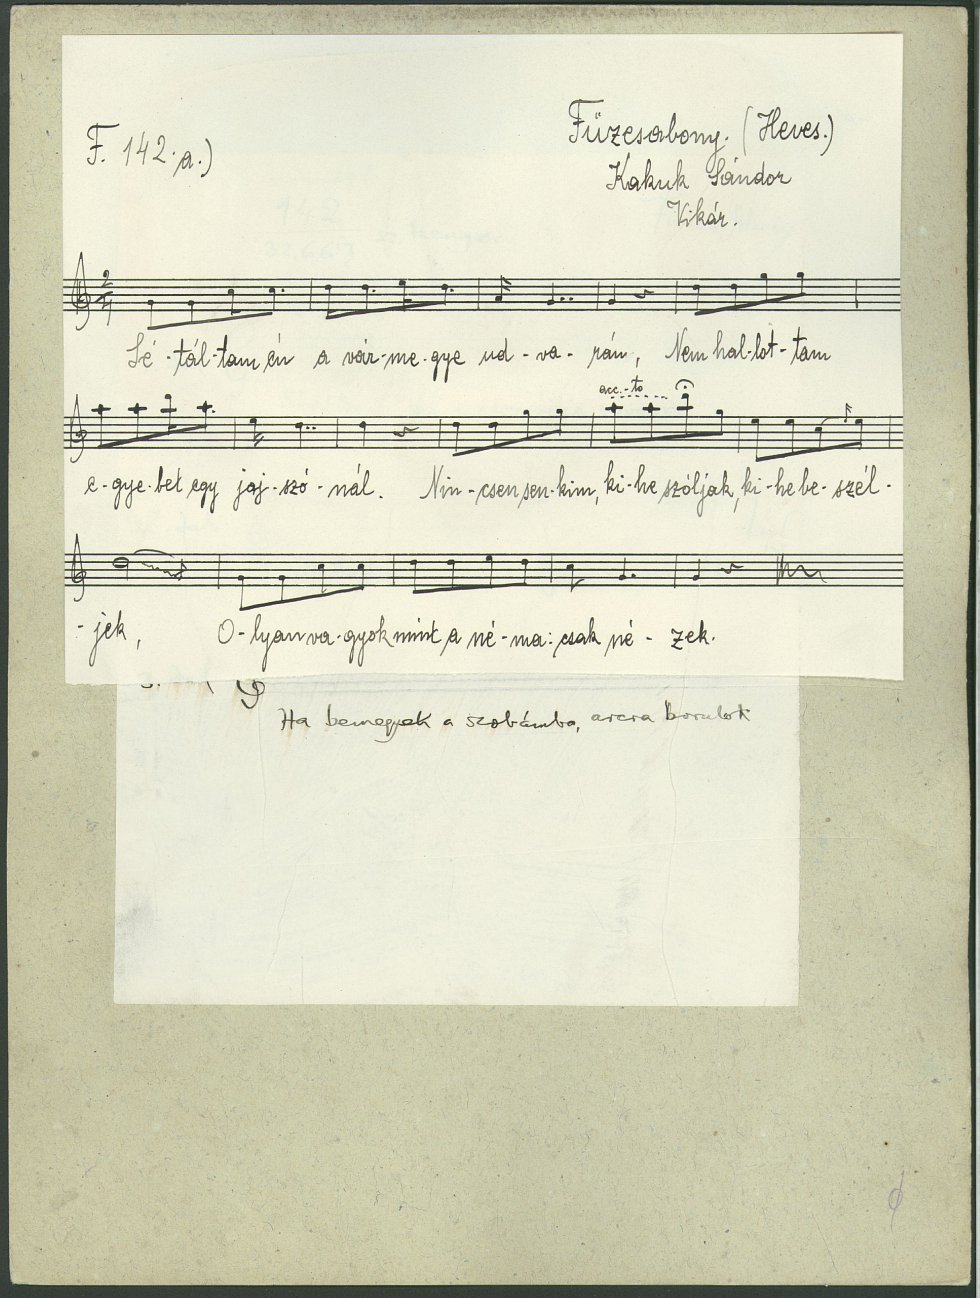 F. 142.a.)
Füzesabony. (Heves.)
Kakuk Sándor
Vikár.
2/4
Sé-tál-tam én a vár-me-gye ud-va-rán, Nem hal-lot-tam
acc.-to
e-gye-bet egy jaj-szó-nál. Nin-csen sen-kim, ki-he szóljak, ki-he be-szél-
-jek, O-lyan va-gyok mint a né-ma: csak né-zek.
Ha bemegyek a szobámba, arcra borulok